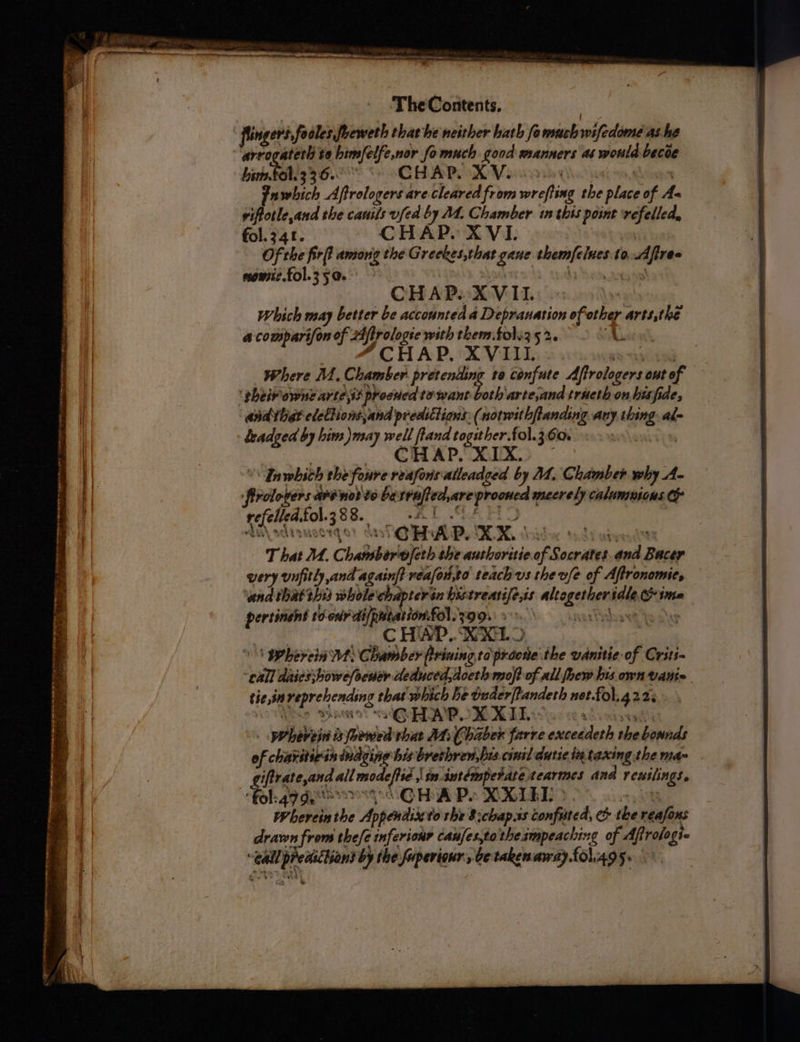 The Contents.
flingers, fooles, sheweth that he neither hath so much wisedome as he
arrogateth to himselfe, nor so much good manners as would becõe
him. fol. 336. CHAP. XV.
Inwhich Astrologers are cleared from wresting the place of A-
ristotle, and the cauils vsed by M. Chamber in this point refelled,
fol. 341. CHAP. XVI.
Of the first among the Greekes, that gaue themselues to Astro-
nomie. fol. 350.
CHAP. XVII.
Which may better be accounted a Deprauation of other arts, the
a comparison of Astrologie with them. fol. 352.
CHAP. XVIII.
Where M. Chamber pretending to confute Astrologers out of
their owne arte, is prooued to want both arte, and trueth on his side,
and that elections, and predictions (notwithstanding any thing al-
leadged by him) may well stand togither. fol. 360.
CHAP. XIX.
In which the foure reasons alleadged by M. Chamber why A-
strologers are not to be trusted, are prooued meerely calumnious &
refelled. fol. 388.
CHAP. XX.
That M. Chamber vseth the authoritie of Socrates and Bucer
very vnfitly, and against reason, to teach vs the vse of Astronomie,
and that this whole chapter in his treatise, is altogether idle & im-
pertinent to our disputation. fol. 399.
CHAP. XXI.
Wherein M. Chamber striuing to prooue the vanitie of Criti-
call daies, howesoeuer deduced, doeth most of all shew his own vani-
tie, in reprehending that which he vnderstandeth not. fol. 422.
CHAP. XXII.
Wherein is shewed that M. Chãber farre exceedeth the bounds
of charitie in iudging his brethren, his ciuil dutie in taxing the ma-
gistrate, and all modestie, in intemperate tearmes and reuilings.
fol. 479. CHAP. XXIII.
Wherein the Appendix to the 8. chap. is confuted, & the reasons
drawn from these inferiour causes, to the impeaching of Astrologi-
call predictions by the superiour, be taken away. fol. 495.